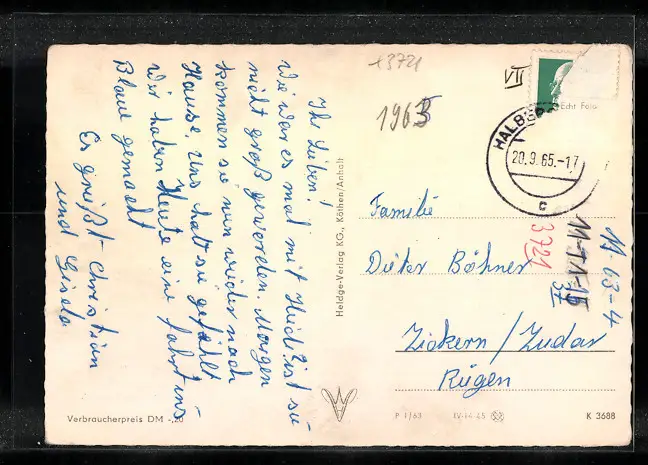 Ihr Lieben!
Wie war es mal mit Heidi? ist sie
nicht groß geworden. Morgen
kommen sie nun wieder nach
Hause. Uns hat sie gefehlt
Wir haben Heute eine fahrt ins
Blaue gemacht
Es grüßt Christian
und Gisela
Verbraucherpreis DM -,20
Heldge-Verlag KG., Köthen/Anhalt
13721
1963
VII
HALBERS
20.9.65.-17
c
Familie
Dieter Böhner
Zickern / Zudar
Rügen
3721
11-63-4
P 1/63 IV-14-45 K 3688